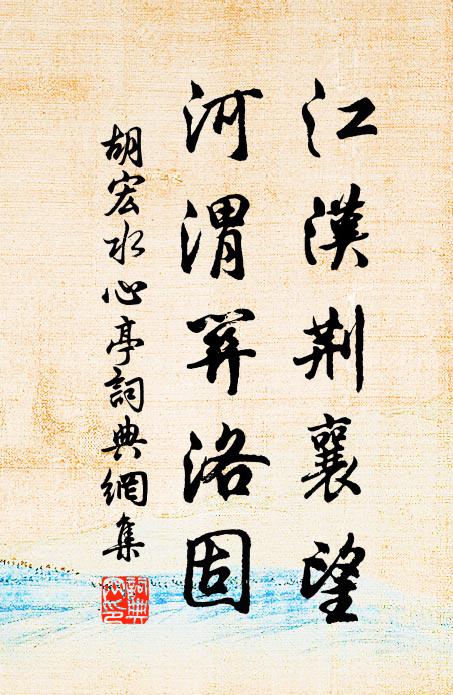 江漢荆襄望
河渭關洛固
胡宏水心亭詞典網集
詞典